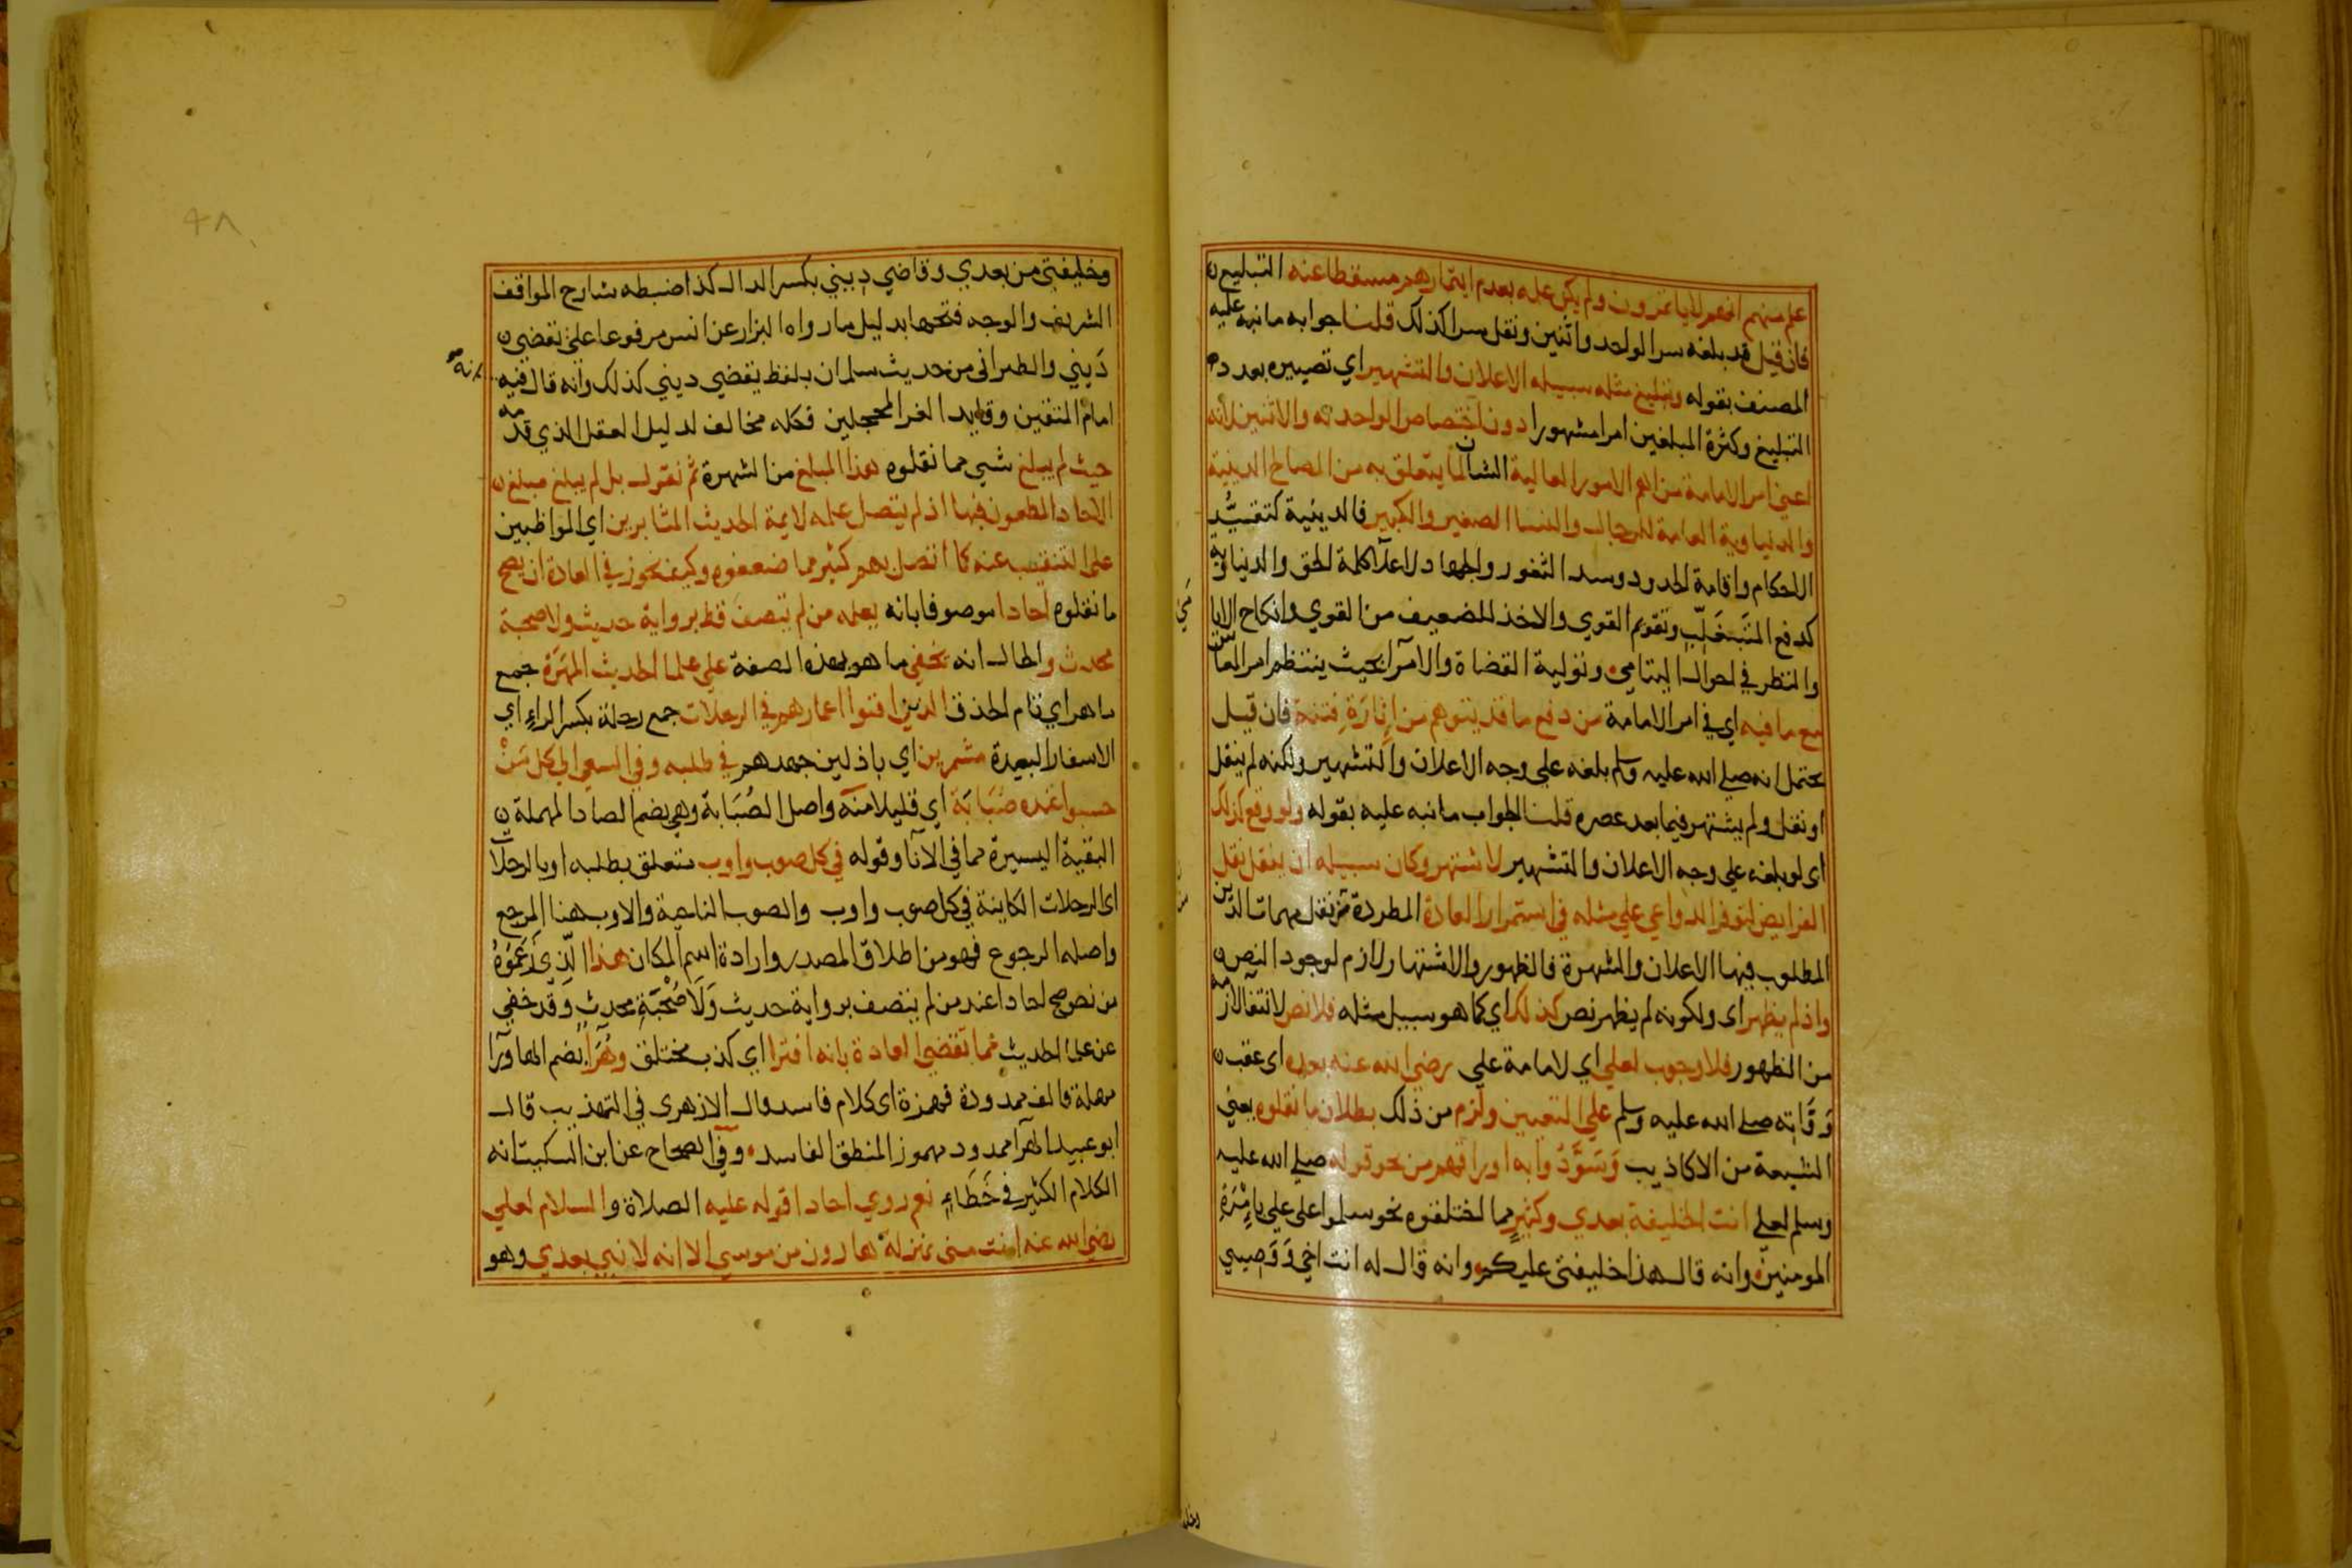 علم منهم انهم لا ياتمرون ولم يكن علمه بعدم ايتمارهم مسقطا عنه التبليغ
فان قيل قد بلغه سرا لواحد واثنين ونقل سرا كذلك قلنا جوابه ما نبه عليه
المصنف بقوله وتبليغ مثله سبيله الاعلان والتشهير اي تصييره بعدد
التبليغ وكثرة المبلغين امرا مشهورا دون اختصاص الواحد به والاثنين لانه
اعني امر الامامة من اهم الامور العالية الشان لما يتعلق به من المصالح الدينية
والدنياوية العامة للرجال والنسا الصغير والكبير فالدينية كتقييد
الاحكام واقامة الحدود وسد الثغور والجهاد لاعلآ كلمة الحق والدنياوية
كدفع المتَغلّب وتقويم القوي والاخذ للضعيف من القوي وانكاح الايا
والنظر في احوال اليتامي وتولية القضاة والامرآ بحيث ينتظم امر المعاش
مع ما فيه اي في امر الامامة من دفع ما قد يتوهم من اِثارَةِ فتنة فان قيل
يحتمل انه صلي الله عليه وسلم بلغه علي وجه الاعلان والتشهير ولكنه لم ينقل
او نقل ولم يشتهر فيما بعد عصره قلنا الجواب ما نبه عليه بقوله ولو وقع كذلك
اي لو بلغه علي وجه الاعلان والتشهير لاشتهر وكان سبيله ان ينقل نقل
الفرايض لتوفر الدواعي علي مثله في استمرار العادة المطردة من نقل مهمات الدين
المطلوب فيها الاعلان والشهرة فالظهور والاشتهار لازم لوجود النص
واذ لم يظهر اي ولكونه لم يظهر نص كذلك اي كما هو سبيل مثله فلا نص لانتفا لازمه
من الظهور فلا وجوب لعلي اي لامامة علي رضي الله عنه بعده اي عقب
وَفَاته صلي الله عليه وسلم علي التعيين ولزم من ذلك بطلان ما نقلوه يعني
الشيعة من الاكاذيب وَسَوَّدُوا به اوراقهم من نحو قوله صلي الله عليه
وسلم لعلي انت الخليفة بعدي وكثيرٍ مما اختلقوه نحو سلموا علي علي بامْرَةِ
المومنين وانه قال هذا خليفتي عليكم وانه قال له انت اخي وَوَصيي
وخليفتي من بعدي وقاضي ديني بكسر الدال كذا ضبطه شارح المواقف
الشريف والوجه فتحها بدليل ما رواه البزار عن انس مرفوعا علي يقضي
دَيني والطبراني من حديث سلمان بلفظ يقضي ديني كذلك وانه قال فيه انه
امام المتقين وقايد الغر المحجلين فكله مخالف لدليل العقل الذي قدمه
حيث لم يبلغ شي مما نقلوه هذا المبلغ من الشهرة ثم نقول بل لم يبلغ مبلغ
الاحاد المطعون فيها اذ لم يتصل علمه لايمة الحديث المثابرين اي المواظبين
علي التنقيب عنه كما اتصل بهم كثير مما ضعفوه وكيف يجوز في العادة ان يصح
ما نقلوه احادا موصوفا بانه يعلمه من لم يتصف قط برواية حديث ولا صحبة
محدث والحال انه يخفي ما هو بهذه الصفة علي علما الحديث المَهَرَة جمع
ماهر اي تام الحذق الذين افنوا اعمارهم في الرحلات جمع رحلة بكسر الراءِ اي
الاسفار البعيدة مشمرين اي باذلين جهدهم في طلبه وفي السعي الي كل مَنْ
حسبوا عنده صُبَابَة اي قليلا منه واصل الصُبَابة وهي بضم الصاد المهملة
البقية اليسيرة مما في الآنآ وقوله في كل صوب واوب متعلق بطلبه او بالرحلات
اي الرحلات الكاينة في كل صوب واوب والصوب الناحية والاوب هنا المرجع
واصله الرجوع فهو من اطلاق المصدر وارادة اسم المكان هذا الّذِي زَعَمُوهُ
من نص صح احادا عند من لم يتصف برواية حديث وَلَا صُحْبَةِ محدثٍ وقد خفي
عن علما الحديث مما تقضي العادة بانه افترا اي كذب مختلق وهُرَآ بضم الها ورآ
مهملة فالف ممدودة فهمزة اي كلام فاسد قال الازهري في التهذيب قال
ابو عبيد الهرآ ممدود مهموز المنطق الفاسد وفي الصحاح عن ابن السكيت انه
الكلام الكثير في خَطَاءٍ نعم روي احادا قوله عليه الصلاة والسلام لعلي
رضي الله عنه انت مني بمنزلة هارون من موسي الا انه لا نبي بعدي وهو